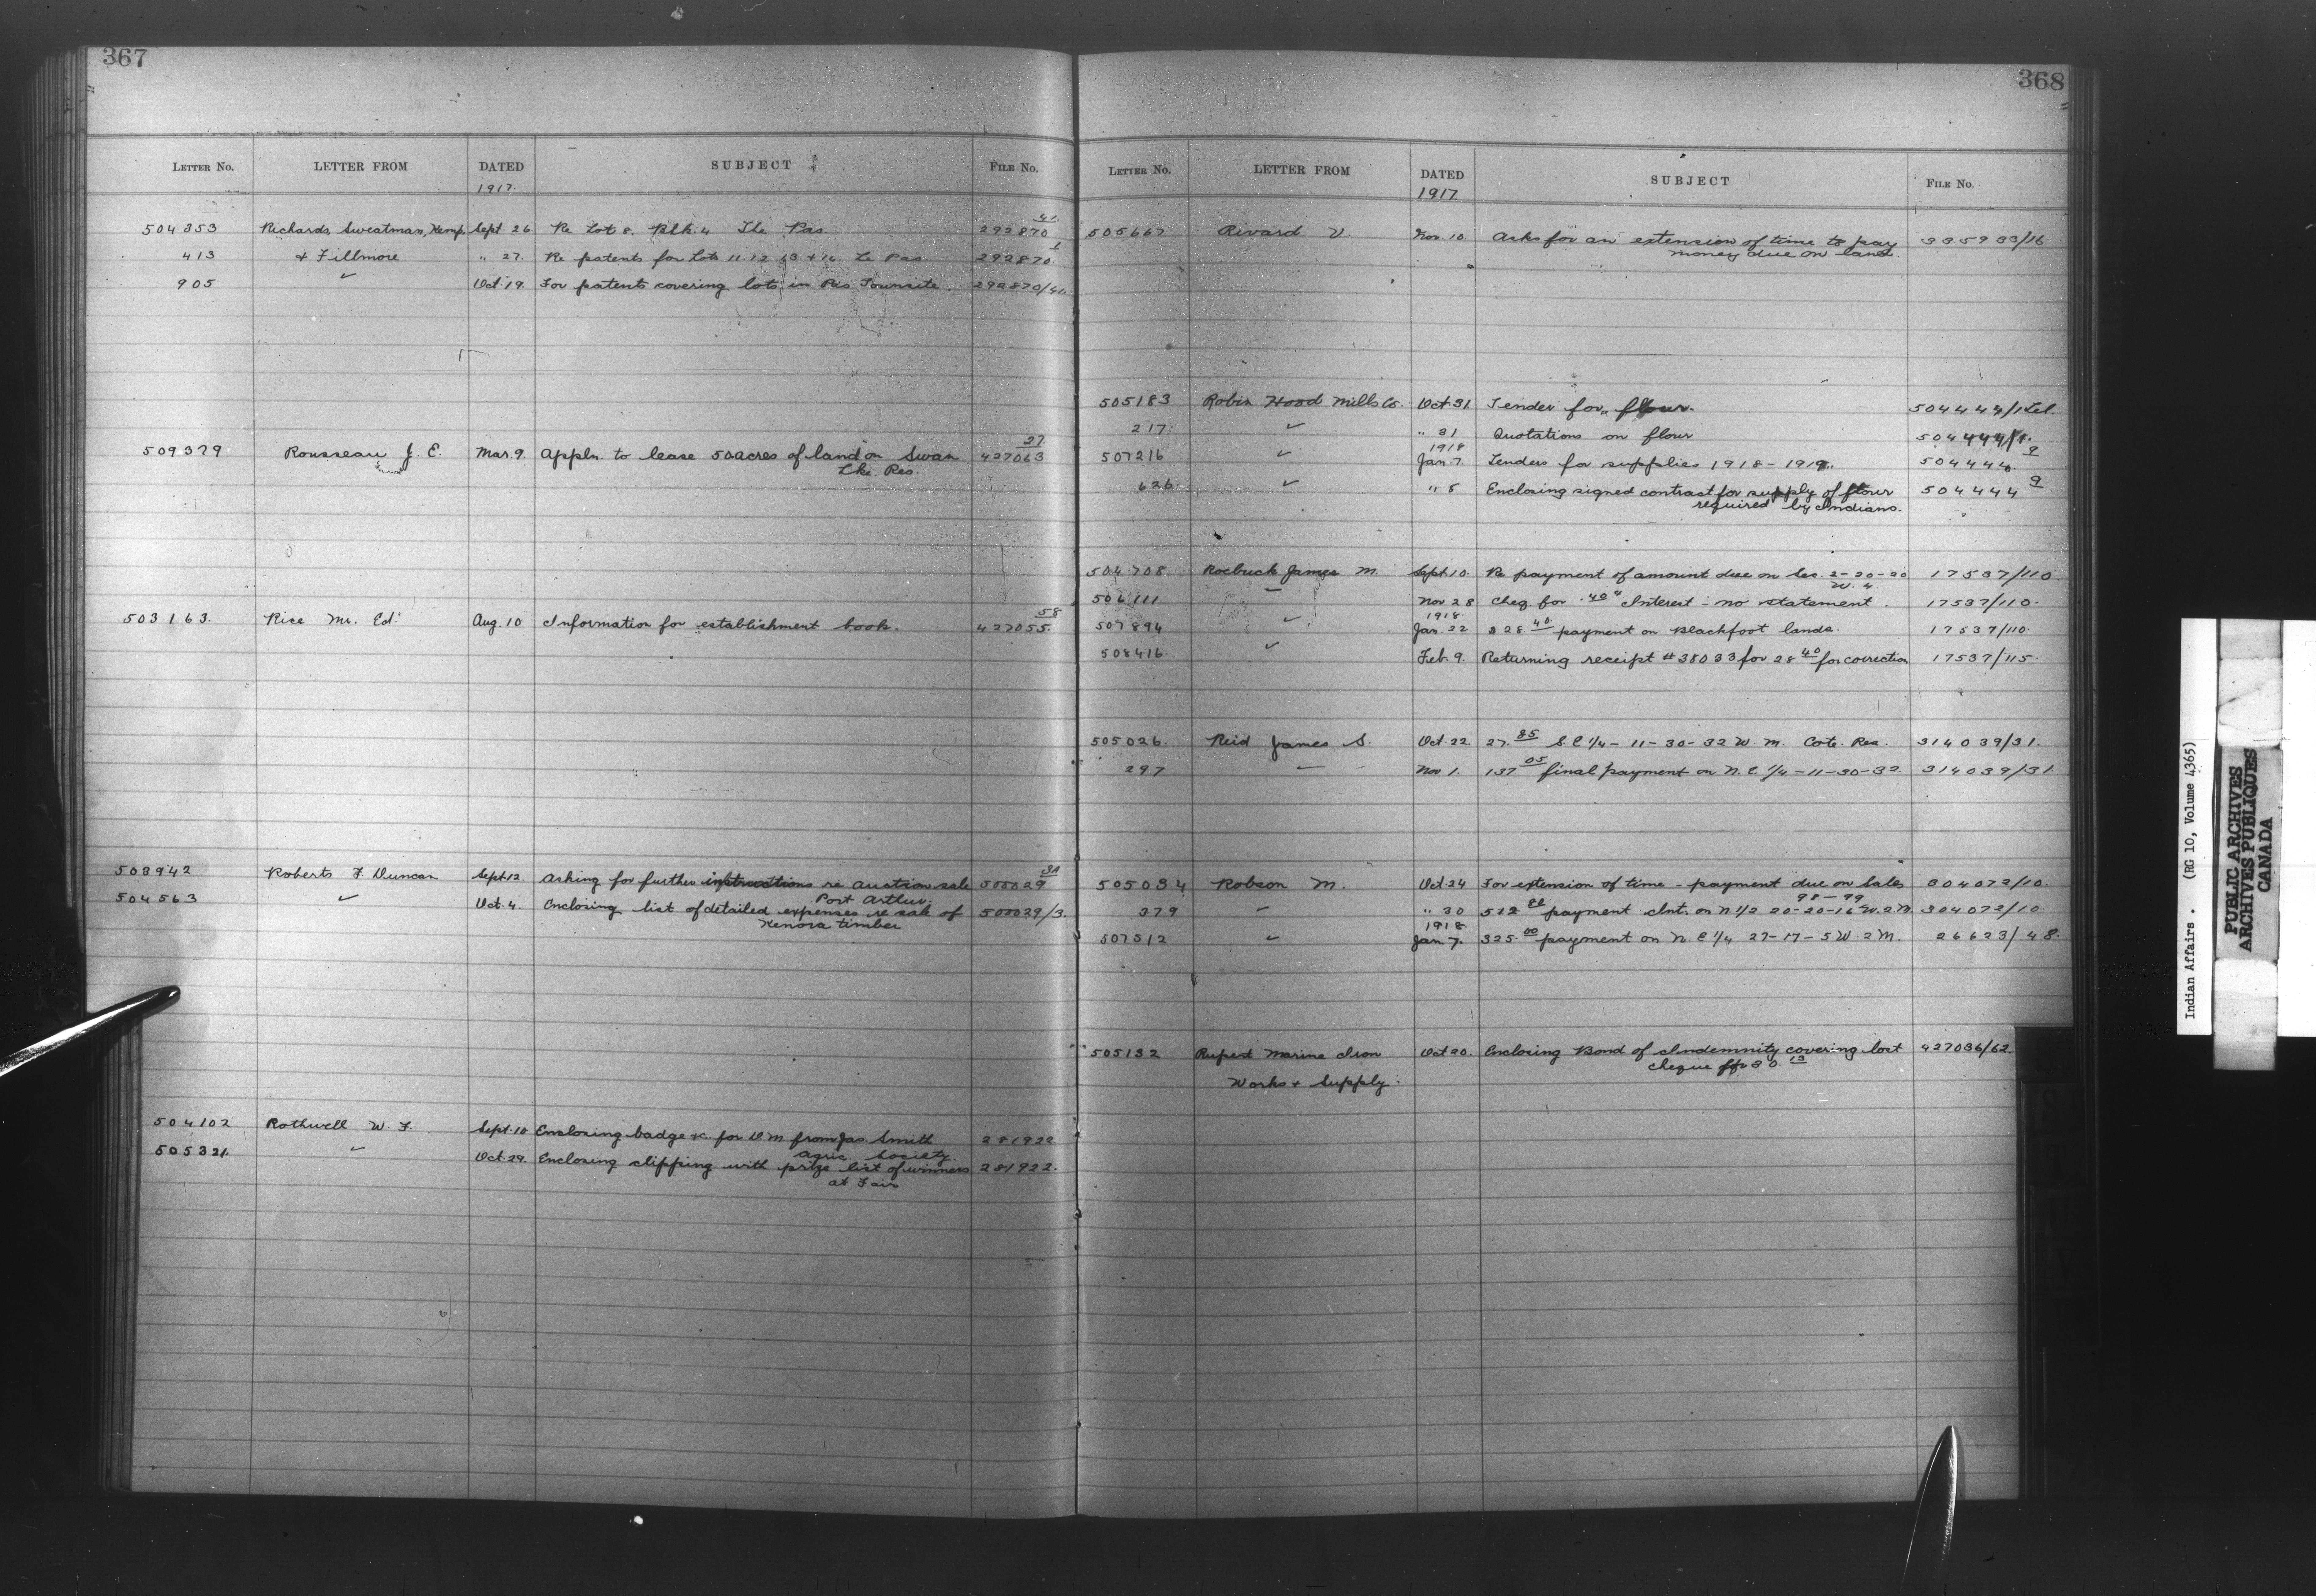 367
LETTER No. LETTER FROM DATED SUBJECT FILE No.
1917.
504353 Richards, Sweatman, Kemp Sept. 26 Re Lot 8. Blk. 4 The Pas. 292870 41
413 & Fillmore " 27. Re patents for Lots 11-12-13 + 14 Le Pas. 292870 1
905 ✓ Oct. 19. For patents covering lots in Pas Townsite. 292870/41
509379 Rousseau J. E. Mar. 9. Appln. to lease 50 acres of land on Swan 427063 27
Lke. Res.
503163. Rice Mr. Ed. Aug. 10 Information for establishment book. 427055. 58
503942 Roberts F. Duncan Sept. 12 Asking for further instructions re auction sale 500029 3A
Port Arthur.
504563 ✓ Oct. 4. Enclosing list of detailed expenses re sale of 500029/3.
Kenora timber
504102 Rothwell W. F. Sept. 10 Enclosing badge &c. for D M from Jas. Smith 281922
Agric. Society.
505321. ✓ Oct. 29. Enclosing clipping with prize list of winners 281922.
at Fair
368
LETTER No. LETTER FROM DATED SUBJECT FILE No.
1917.
505667 Rivard V. Nov. 10. Asks for an extension of time to pay 335933/16
money due on land.
505183 Robin Hood Mills Co. Oct. 31 Tender for flour. 504444/1 Tel.
217. ✓ " 31 Quotations on flour 504444/1.
1918
507216 ✓ Jan. 7. Tenders for supplies 1918-1919. 504444. 9
626. ✓ " 8 Enclosing signed contract for supply of flour 504444 9
required by Indians.
504708 Roebuck James M. Sept. 10. Re payment of amount due on Sec. 2-20-20 17537/110.
W. 4
506111 ✓ Nov 28 Cheq. for .40 Interest - no statement. 17537/110.
1918.
507894 ✓ Jan. 22 $28.40 payment on Blackfoot lands. 17537/110.
508416 ✓ Feb. 9. Returning receipt #38033 for 28 40 for correction 17537/115.
505026. Reid James S. Oct. 22. 27.85 S. E 1/4 - 11-30-32 W. M. Cote. Res. 314039/31.
297 ✓ Nov 1. 137 05 final payment on N. E. 1/4 - 11-30-32 314039/31.
505034 Robson M. Oct. 24 For extension of time - payment due on Sales 304072/10.
98-99
379 ✓ " 30 512 payment Int. on N 1/2 20-20-16 W. 2 M. 304072/10.
1918
507512 ✓ Jan 7. 325.00 payment on N. E 1/4 27-17-5 W. 2 M. 26623/48.
505132 Rupert Marine Iron Oct 20. Enclosing Bond of Indemnity covering lost 427036/62.
Works & Supply. cheque for 30.13
Indian Affairs. (RG 10, Volume 4365)
PUBLIC ARCHIVES
ARCHIVES PUBLIQUES
CANADA